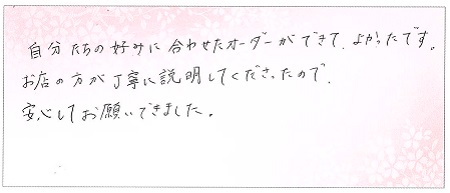 自分たちの好みに合わせたオーダーができて、よかったです。
お店の方が丁寧に説明してくださったので、
安心してお願いできました。